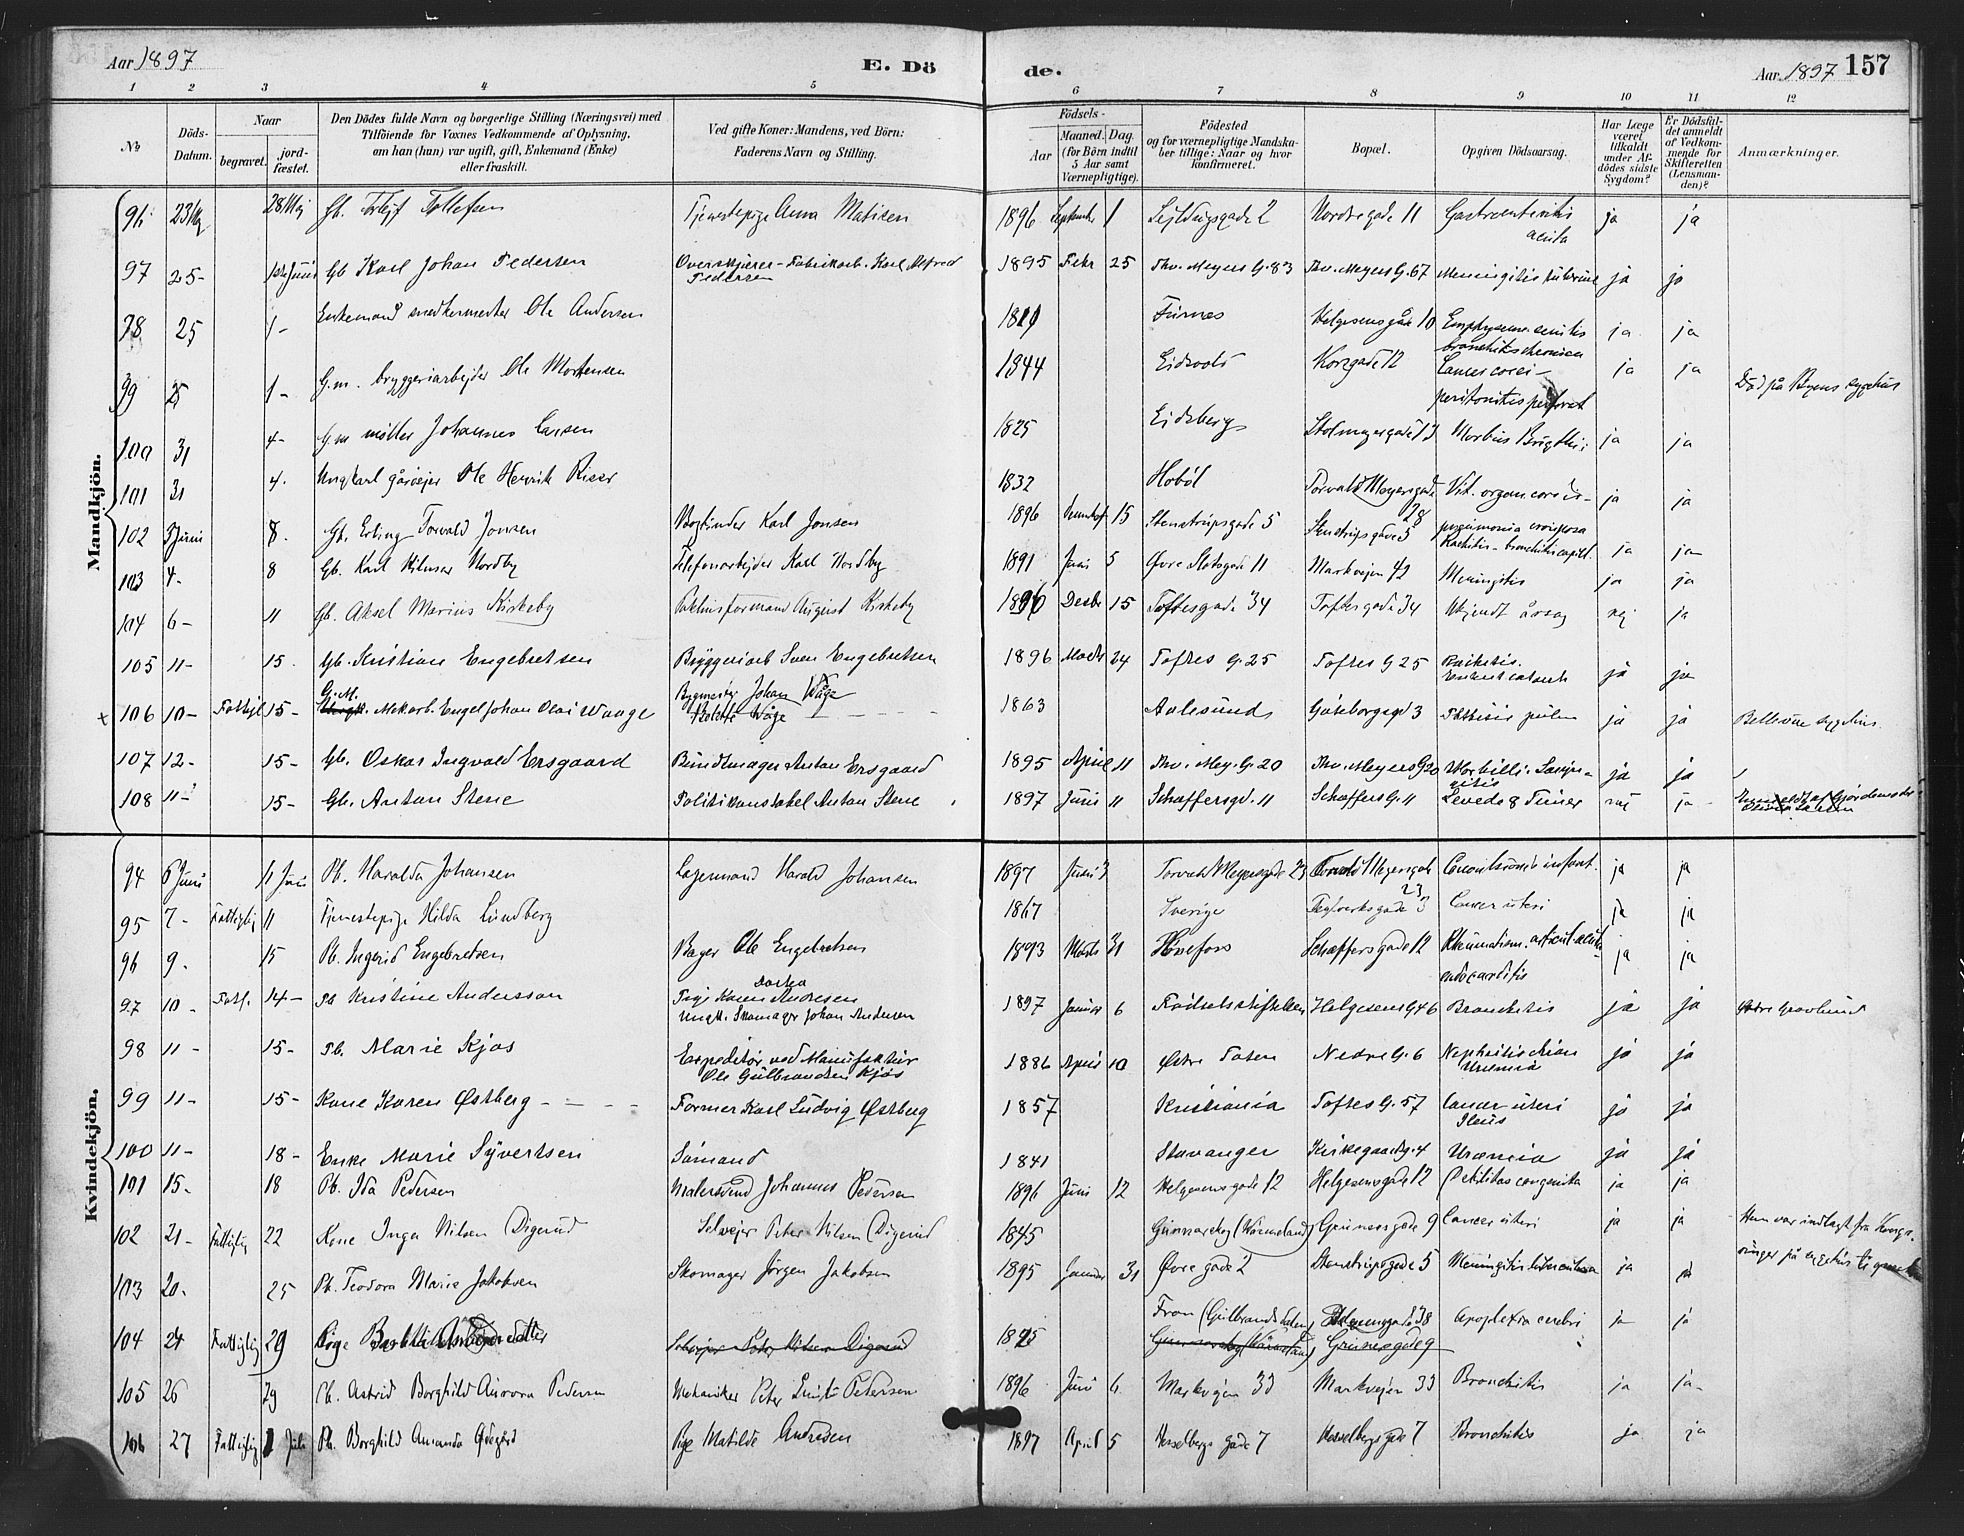 Aar 1897 E. Dö
de. Aar 1897 157
1 2 3 4 5 6 7 8 9 10 11 12
№
Döds-Datum.
Naar
begravet.
jord-fæstet.
Den Dödes fulde Navn og borgerlige Stilling (Næringsvei) med
Tilföiende for Voxnes Vedkommende af Oplysning,
om han (hun) var ugift, gift, Enkemand (Enke)
eller fraskilt.
Ved gifte Koner: Mandens, ved Börn:
Faderens Navn og Stilling.
Födsels-
Aar
Maaned. Dag.
(for Börn indtil
5 Aar samt
Værnepligtige).
Födested
og for værnepligtige Mandska-
ber tillige: Naar og hvor
konfirmeret.
Bopæl.
Opgiven Dödsaarsag.
Har Læge
været
tilkaldt
under Af-
dödes sidste
Sygdom?
Er Dödsfal-
det anmeldt
af Vedkom-
mende for
Skifteretten
(Lensman-
den)?
Anmærkninger.
Mandkjön.
96 23 Maj 28 Maj Gb. Tollefsen Tjenestepige Anna Matisen 1896 September 1 2 Nordregade 11 Gastroenteritis acuta ja ja
97 25- 1ste Juni Gb Karl Johan Pedersen Overskjærer-Fabrikarb. Karl Alfred Pedersen 1895 Febr 25 Thv. Meyers G. 83 Thv. Meyers G. 67 Meningitis ja ja
98 25 1- Enkemand snedkermester Ole Andersen Furnes Helgesensgade 10 Emphysem. senilis bronchitis chronica ja ja
99 25 1- G.m. bryggeriarbejder Ole Mortensen 1844 Eidsvold Korsgade 12 Cancer coeci- peritonitis ja ja Død på Byens sygehus
100 31 4- Gm møller Johannes Larsen 1825 Eidsberg 13 Morbus Brigthii ja ja
101 31 4. Ungkarl gårdejer Ole Henrik Riser 1832 Hobøl Torvald Meyersgade 28 Vit. organ cordis- ja ja
102 3 Juni 8. Gb. Erling Torvald Jonsen Bogbinder Karl Jonsen 1896 15 Stenstrupsgade 5 Stenstrupsgade 5 pneumonia crouposa Rachitis-bronchitis capill. ja ja
103 4- 8 Gb. Karl Hilmar Nordby Telefonarbejder Karl Nordby 1891 Juni 5 Øvre Slotsgade 11 Markvejen 42 Meningitis ja ja
104 6- 11 Gb. Aksel Marius Kirkeby August Kirkeby 1896 Decbr 15 Toftesgade 34 Toftesgade 34 Ukjendt årsag nej ja
105 11- 15. Gb. Kristian Engebretsen Bryggeriarb Sven Engebretsen 1896 Marts 24 Toftes G. 25 Toftes G 25 Rachitis. ja ja
x 106 10- Fattigl 15- G.M. Mek.arb. Engel Johan Olai Waage Bygmester Johan Wåge Bolette Wåge 1863 Aalesund Göteborggd 3 Phthisis pulm ja ja Bellevue sygehus.
107 12- 15- Gb. Oskar Ingvald Ersgaard Buntmager Anton Ersgaard 1895 April 11 Thv. Mey. G. 20 Thv. Meyers G 20 Morbilli. Laryngitis ja ja
108 11- 15- Gb. Anton Stene Politikonstabel Anton Stene 1897 Juni 11 Schæffersgd. 11 Schæffers G. 11 Levede 8 Timer nei ja Anmeldt af Gjordemoder
Kvindekjön.
94 6 Juni 11 Juni Pb. Haralda Johansen Lagermand Harald Johansen 1897 Juni 3 Torvald Meyersgade 23 Torvald Meyersgade 23 infant. ja ja
95 7- Fattiglig 11 Tjenestepige Hilda Lundberg 1867 Sverige Teglverksgade 3 Cancer uteri ja ja
96 9. 15 Pb. Ingerid Engebretsen Bager Ole Engebretsen 1893 Marts 31 Hønefoss Schæffersgade 12 Rheumatism. articul. acut- endocarditis ja ja
97 10- Fattf. 14- Pb Kristine Andersson Pige Karen Dortea Andresen Ungk. Skomager Johan Andersen 1897 Januar 6 Fødselsstiftelsen Helgesens G 46 Bronchitis ja ja Østre Gravlund
98 11- 15- Pb. Marie Kjos Expeditør ved Manufaktur Ole Gulbrandsen Kjos 1886 April 10 Østre Toten Nedre G. 6 Nephritis chron Uræmia ja ja
99 11- 15- Kone Karen Østberg - - - - Former Karl Ludvig Østberg 1857 Kristiania Toftes G. 57 Cancer uteri Ileus ja ja
100 11- 18- Enke Marie Syvertsen Sømand 1841 Stavanger Kirkegaardg. 4 Uræmia ja ja
101 15- 18 Pb. Ida Pedersen Malersvend Johannes Pedersen 1896 Juni 12 Helgesensgade 12 Helgesensgade 12 Debilitas congenita ja ja
102 21- Fattiglig 22 Kone Inga Nilsen (Digerud Selvejer Peter Nilsen (Digerud 1845 Gunnarskog (Wärmeland) Grünersgade 9 Cancer uteri ja ja Hun var indlagt fra Kongsvinger på sygehus
103 20- 25 Pb. Teodora Marie Jakobsen Skomager Jørgen Jakobsen 1895 Januar 31 Øvre gade 2 Stenstrupsgade 5 Meningitis tuberculosa ja ja
104 24 Fattiglig 29 Pige Selvejer Peter Nilsen Digerud Fron (Gulbrandsdalen) 38 Apoplexia cerebri ja ja
Gunnarskog (Wärmeland) Grünersgade 9
105 26 29 Pb. Astrid Borghild Aurora Pedersen Mekaniker Peter Pedersen 1896 Juni 6 Markvejen 33 Markvejen 33 Bronchitis ja ja-
106 27 Fattiglig 1 Juli Pb. Borghild Amanda Pige Matilde Andresen 1897 April 5 Hesselbergs gade 7 Hesselbergs gade 7 Bronchitis ja ja